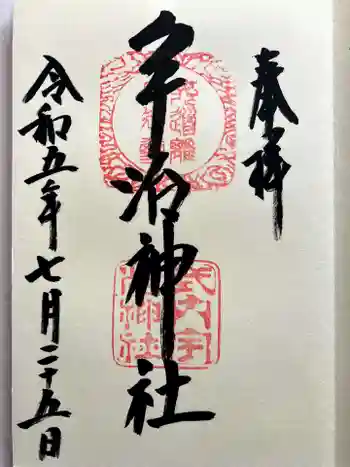 奉拝
宇治神社
式内宇治神社
令和五年七月二十五日